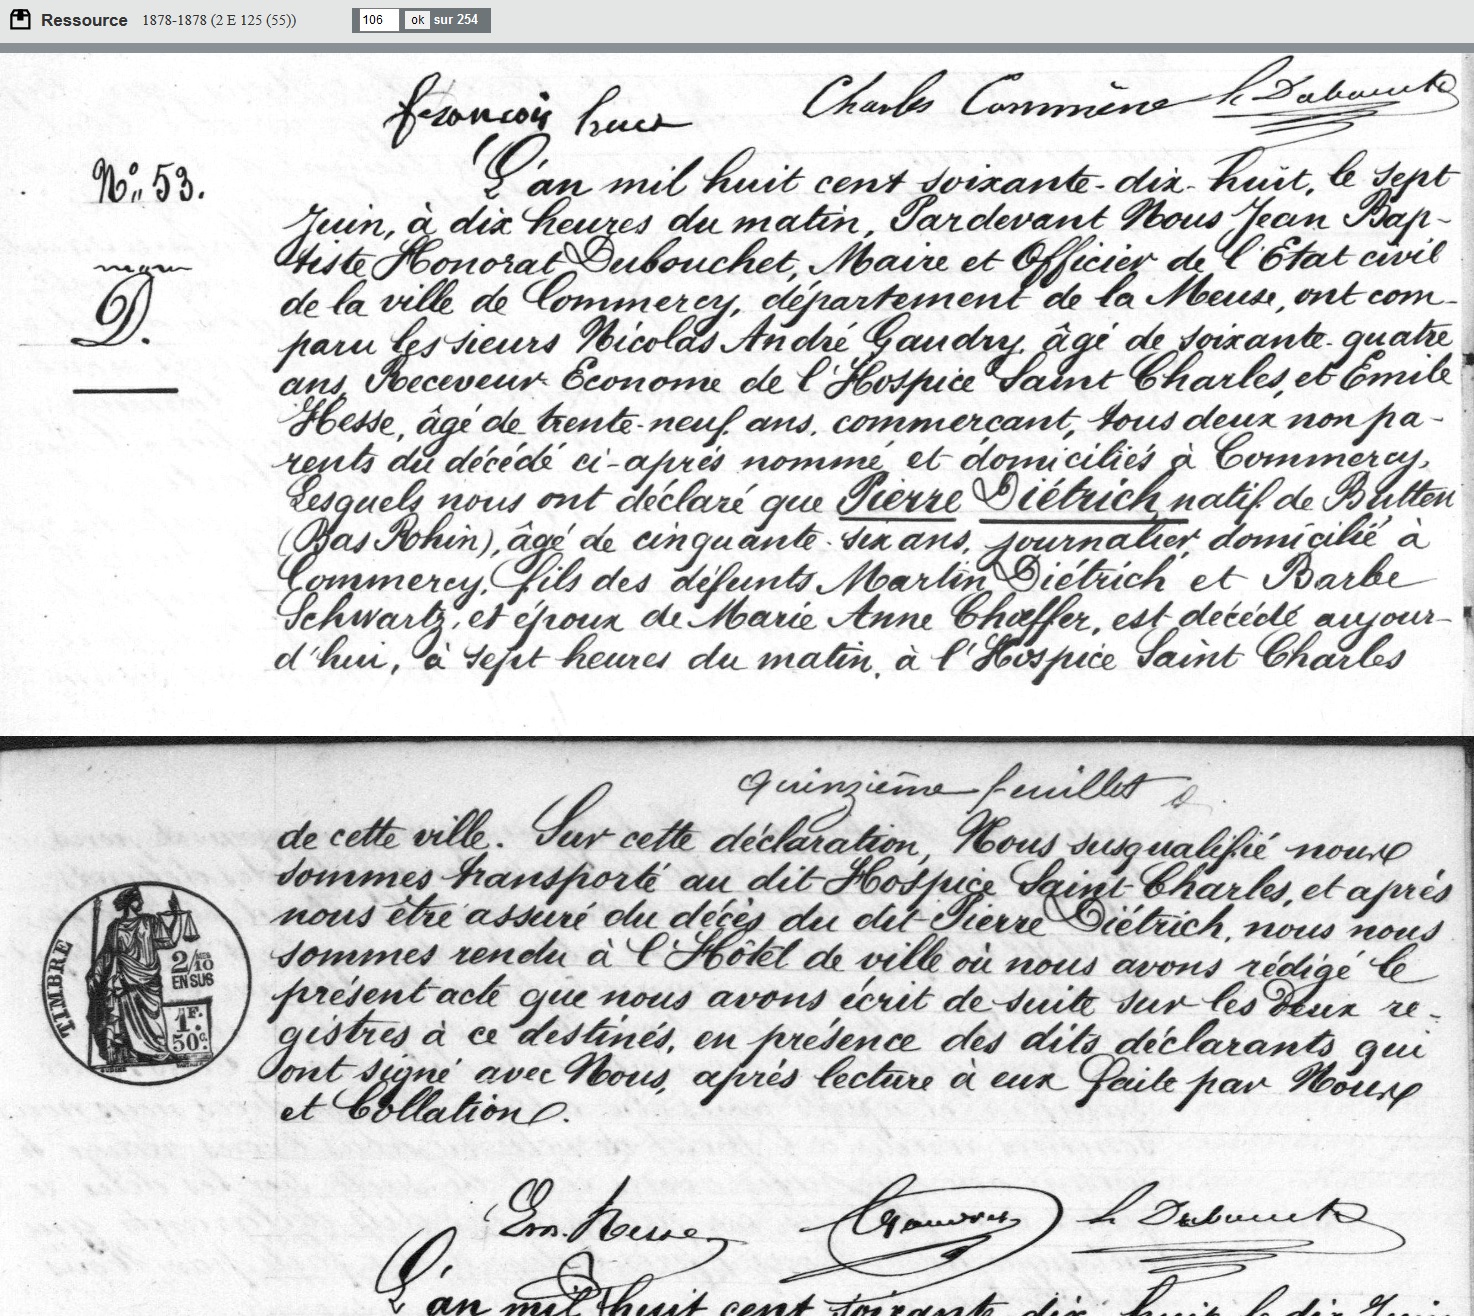 Ressource 1878-1878 (2 E 125 (55)) 106 ok sur 254
françois Charles Commène h Dubouchet
N° 53. L'an mil huit cent soixante-dix-huit, le sept
Juin, à dix heures du matin, Pardevant Nous Jean Bap-
tiste Honorat Dubouchet, Maire et Officier de l'Etat civil
D.
de la ville de Commercy, département de la Meuse, ont com-
paru les sieurs Nicolas André Gaudry, âgé de soixante-quatre
ans, Receveur Econome de l'Hospice Saint Charles, et Emile
Hesse, âgé de trente-neuf ans, commerçant, tous deux non pa-
rents du décédé ci-après nommé et domiciliés à Commercy,
Lesquels nous ont déclaré que Pierre Diétrich, natif de Butten
(Bas Rhin), âgé de cinquante-six ans, journalier, domicilié à
Commercy, fils des défunts Martin Diétrich et Barbe
Schwartz, et époux de Marie Anne Chœffer, est décédé aujour-
d'hui, à sept heures du matin, à l'Hospice Saint Charles
quinzième feuillet
de cette ville. Sur cette déclaration, Nous susqualifié nous
sommes transporté au dit Hospice Saint Charles, et après
nous être assuré du décès du dit Pierre Diétrich, nous nous
sommes rendu à l'Hôtel de ville où nous avons rédigé le
présent acte que nous avons écrit de suite sur les deux re-
gistres à ce destinés, en présence des dits déclarants qui
ont signé avec Nous, après lecture à eux faite par Nous
et Collation.
TIMBRE
2/10 EN SUS
1F. 50c.
Em. Hesse Gaudry h Dubouchet
L'an mil huit cent soixante dix huit le dix Juin